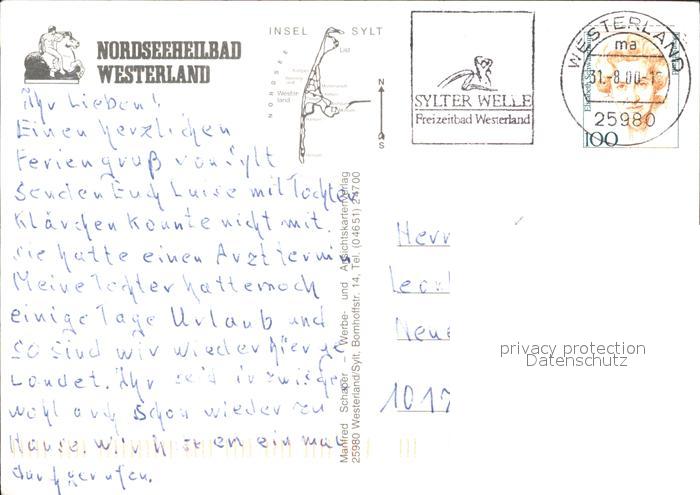 NORDSEEHEILBAD
WESTERLAND
INSEL SYLT
NORDSEE
List
Wester-
land
N
S
SYLTER WELLE
Freizeitbad Westerland
WESTERLAND
ma
31.-8.00-1
25980
100
Ihr Lieben!
Einen herzlichen
Feriengruß von Sylt
senden Euch Luise mit Tochter
Klärchen konnte nicht mit.
sie hatte einen Arzttermin
Meine Tochter hatte noch
einige Tage Urlaub und
so sind wir wieder hier ge
Landet. Ihr seid inzwische
wohl auch schon wieder zu
Hause. wir einmal
durchgerufen.
Manfred Schaper – Werbe- und Ansichtskartenverlag
25980 Westerland/Sylt, Bomhoffstr. 14, Tel. (04651) 24700
Herr
Neue
101
privacy protection
Datenschutz